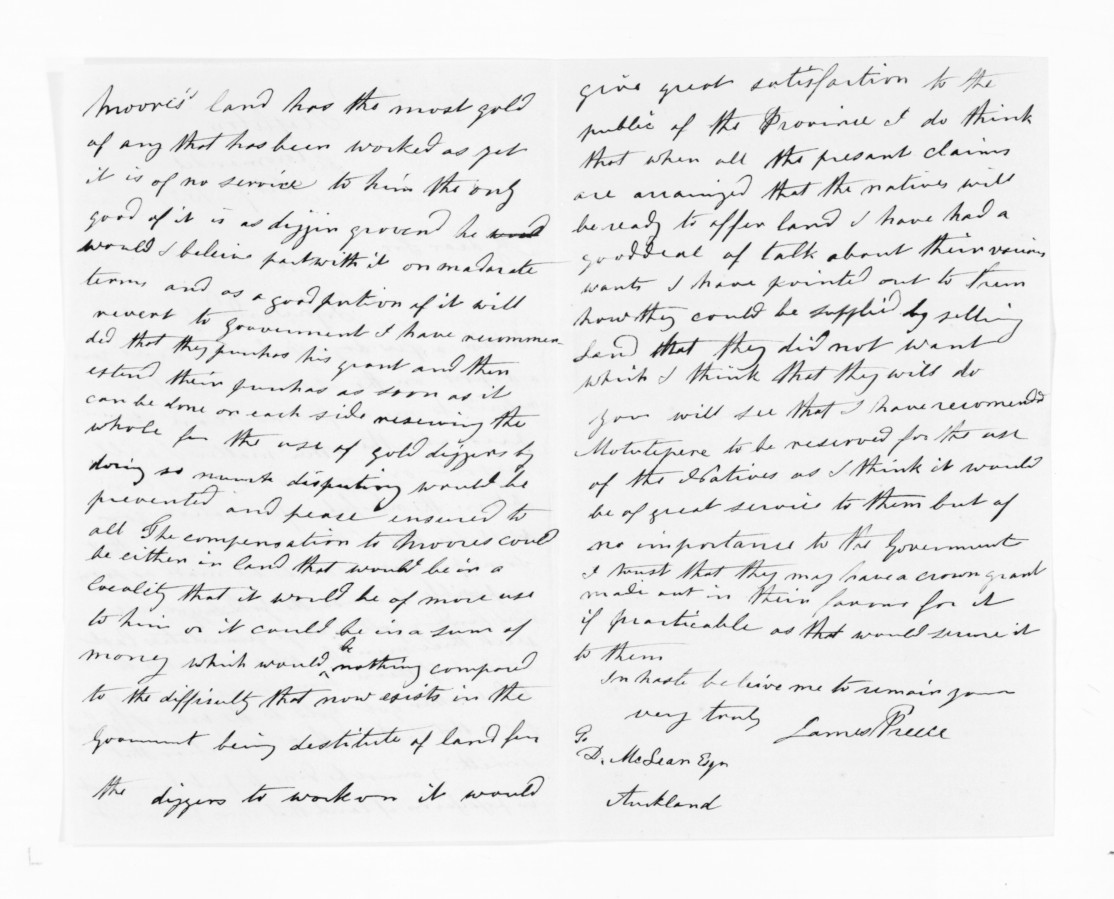 Moores' land has the most gold
of any that has been worked as yet
it is of no service to him the only
good of it is as diggin ground he would
would I beleive part with it on madarate
terms and as a good portion of it will
revert to government I have recommen-
ded that they purchas his grant and then
extend their purchas as soon as it
can be done on each side reserving the
whole for the use of gold diggers by
doing so much disputing would be
prevented and pease ensured to
all The compensation to Moores could
be either in land that would be in a
locality that it would be of more use
to him or it could be in a sum of
money which would be nothing compared
to the difficulty that now exists in the
Goverment being destitute of land for
the diggers to work on it would
give great satisfaction to the
public of the Province I do think
that when all the presant claims
are arrainged that the natives will
be ready to offer land I have had a
good deal of talk about their various
wants I have pointed out to them
how they could be supplied by selling
Land that they did not want
which I think that they will do
you will see that I have recomended
Motutepere to be reserved for the use
of the Natives as I think it would
be of great service to them but of
no importance to the Goverment
I trust that they may have a crown grant
made out in their favour for it
if practicable as that would secure it
to them
In haste beleive me to remain your
very truly
James Preece
To
D. McLean Eqr
Auckland